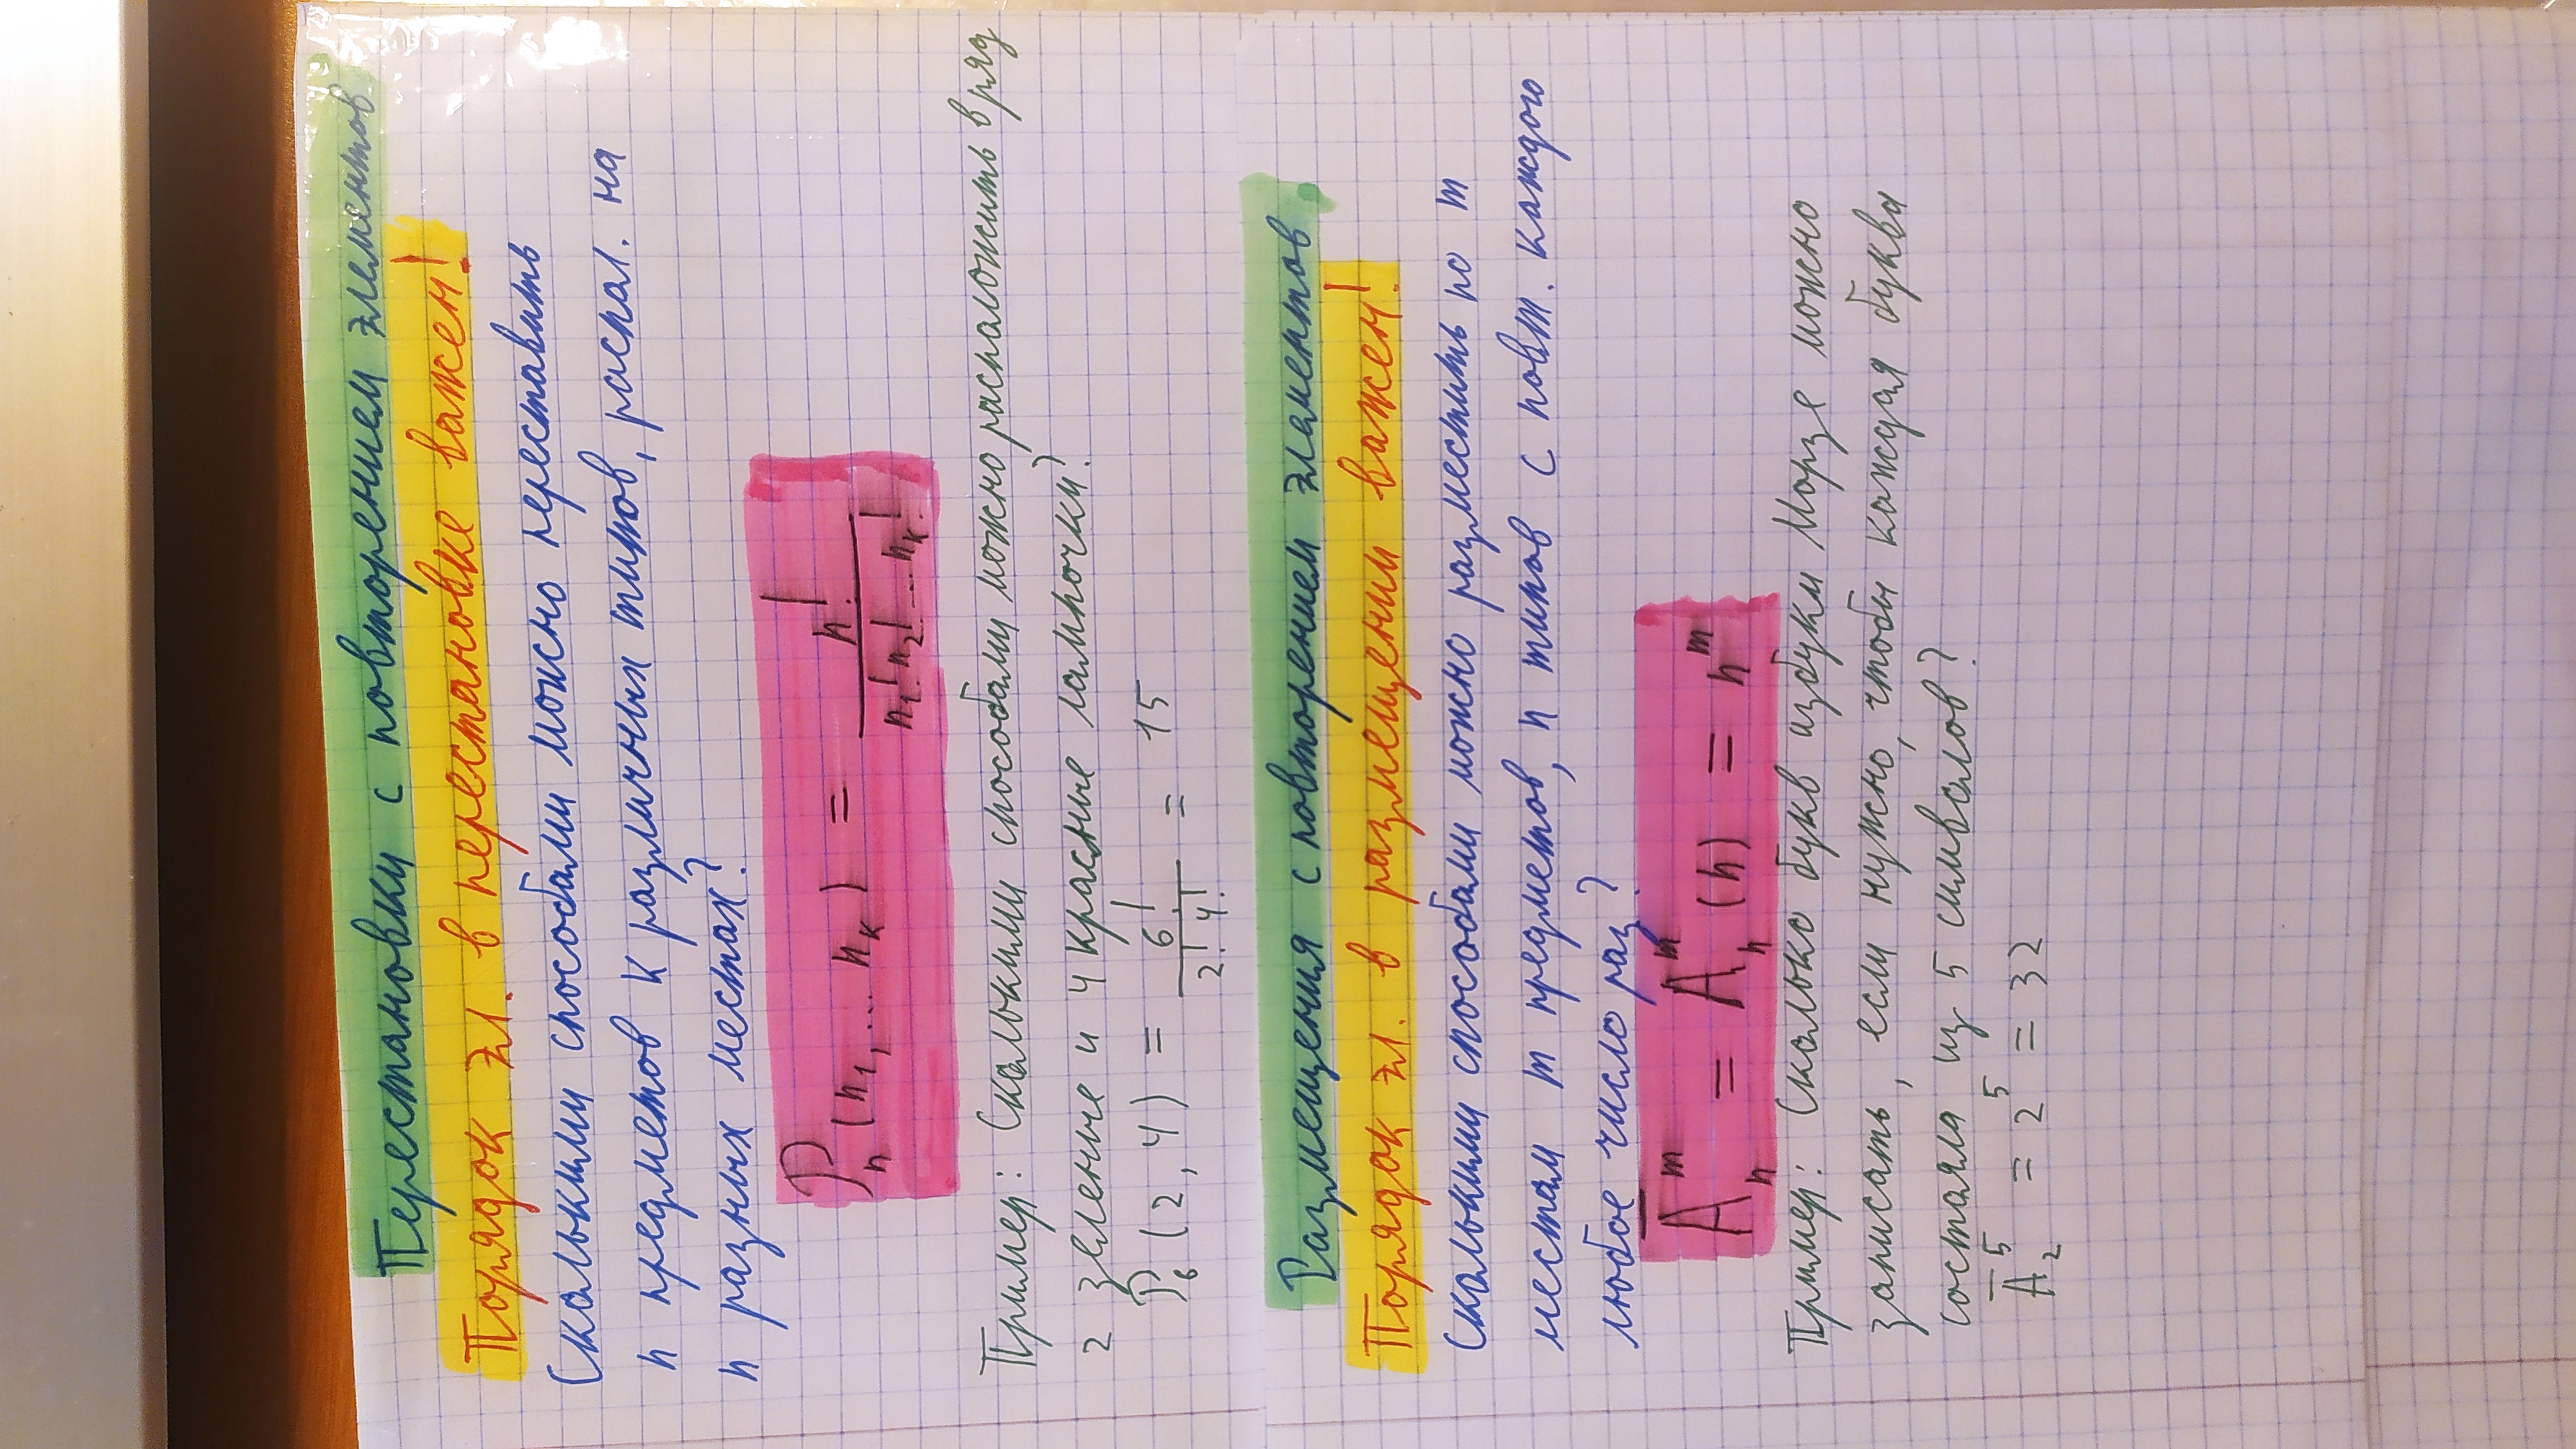 Перестановки с повторением элементов
Порядок эл. в перестановке важен!
Сколькими способами можно переставить
n предметов k различных типов, распол. на
n разных местах?
Pₙ(n₁,... nₖ) = n! / n₁! n₂! ... nₖ!
Пример: Сколькими способами можно расположить в ряд
2 зеленые и 4 красные лампочки?
P₆(2,4) = 6! / 2! 4! = 15
Размещения с повторением элементов
Порядок эл. в размещении важен!
Сколькими способами можно разместить по m
местам m предметов, n типов с повт. каждого
любое число раз?
A̅ₙᵐ = Aₙᵐ(n) = nᵐ
Пример: Сколько букв азбуки Морзе можно
записать, если нужно, чтобы каждая буква
состояла из 5 символов?
A̅₂⁵ = 2⁵ = 32